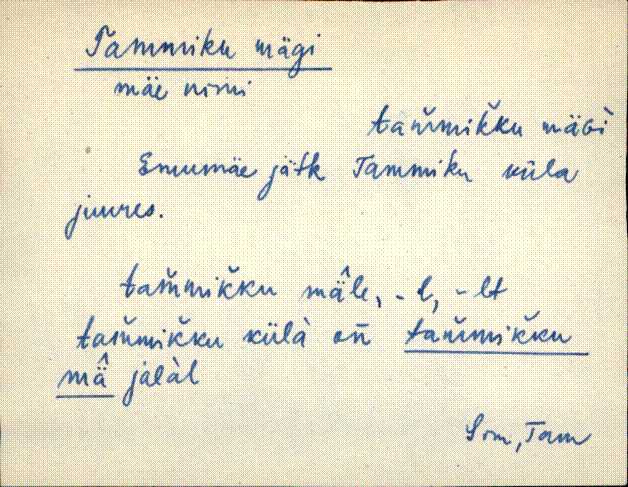 Tammiku mägi
mäe nimi
tam̆mik̆ku mäGì
Emumäe jätk Tammiku küla
juures.
tam̆mik̆ku mä̂le, -l, -lt
tam̆mik̆ku külà on̆ tam̆mik̆ku
mä̂ jalàl
Sim, Tam